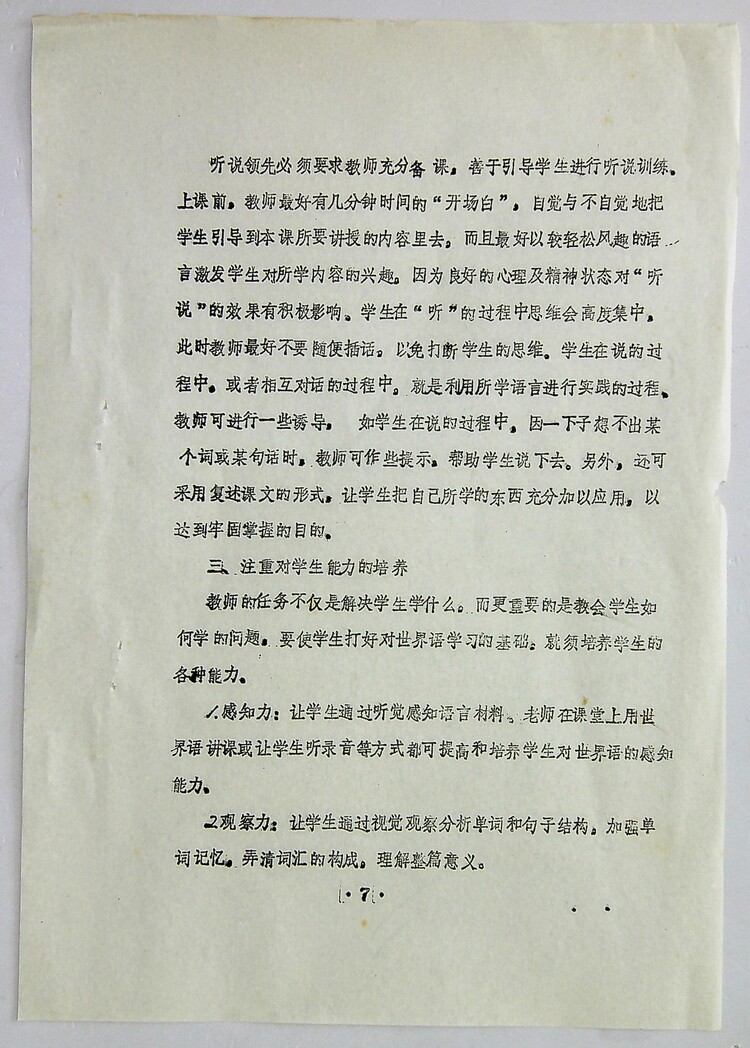 听说领先必须要求教师充分备课，善于引导学生进行听说训练。
上课前，教师最好有几分钟时间的“开场白”，自觉与不自觉地把
学生引导到本课所要讲授的内容里去，而且最好以较轻松风趣的语
言激发学生对所学内容的兴趣。因为良好的心理及精神状态对“听
说”的效果有积极影响。学生在“听”的过程中思维会高度集中，
此时教师最好不要随便插话，以免打断学生的思维。学生在说的过
程中，或者相互对话的过程中，就是利用所学语言进行实践的过程，
教师可进行一些诱导。 如学生在说的过程中，因一下子想不出某
个词或某句话时，教师可作些提示，帮助学生说下去。另外，还可
采用复述课文的形式，让学生把自己所学的东西充分加以应用，以
达到牢固掌握的目的。
三、注重对学生能力的培养
教师的任务不仅是解决学生学什么。而更重要的是教会学生如
何学的问题，要使学生打好对世界语学习的基础，就须培养学生的
各种能力。
1.感知力：让学生通过听觉感知语言材料。老师在课堂上用世
界语讲课或让学生听录音等方式都可提高和培养学生对世界语的感知
能力。
2.观察力：让学生通过视觉观察分析单词和句子结构，加强单
词记忆，弄清词汇的构成，理解整篇意义。
·7·